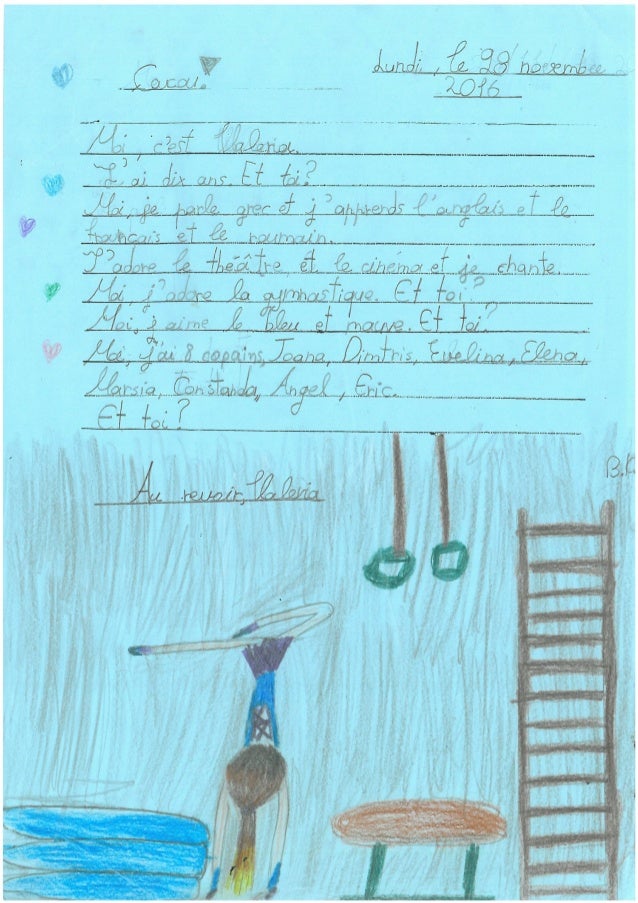 Lundi, le 28 novembre
2016
Coucou!
Moi, c'est Valeria.
J'ai dix ans. Et toi?
Moi, je parle grec et j'apprends l'anglais et le
français et le roumain.
J'adore le théâtre et le cinéma et je chante.
Moi, j'adore la gymnastique. Et toi?
Moi, j'aime le bleu et mauve. Et toi?
Moi, j'ai 8 copains, Joana, Dimtris, Evelina, Elena,
Marsia, Constanda, Angel, Eric.
Et toi?
Au revoir, Valeria